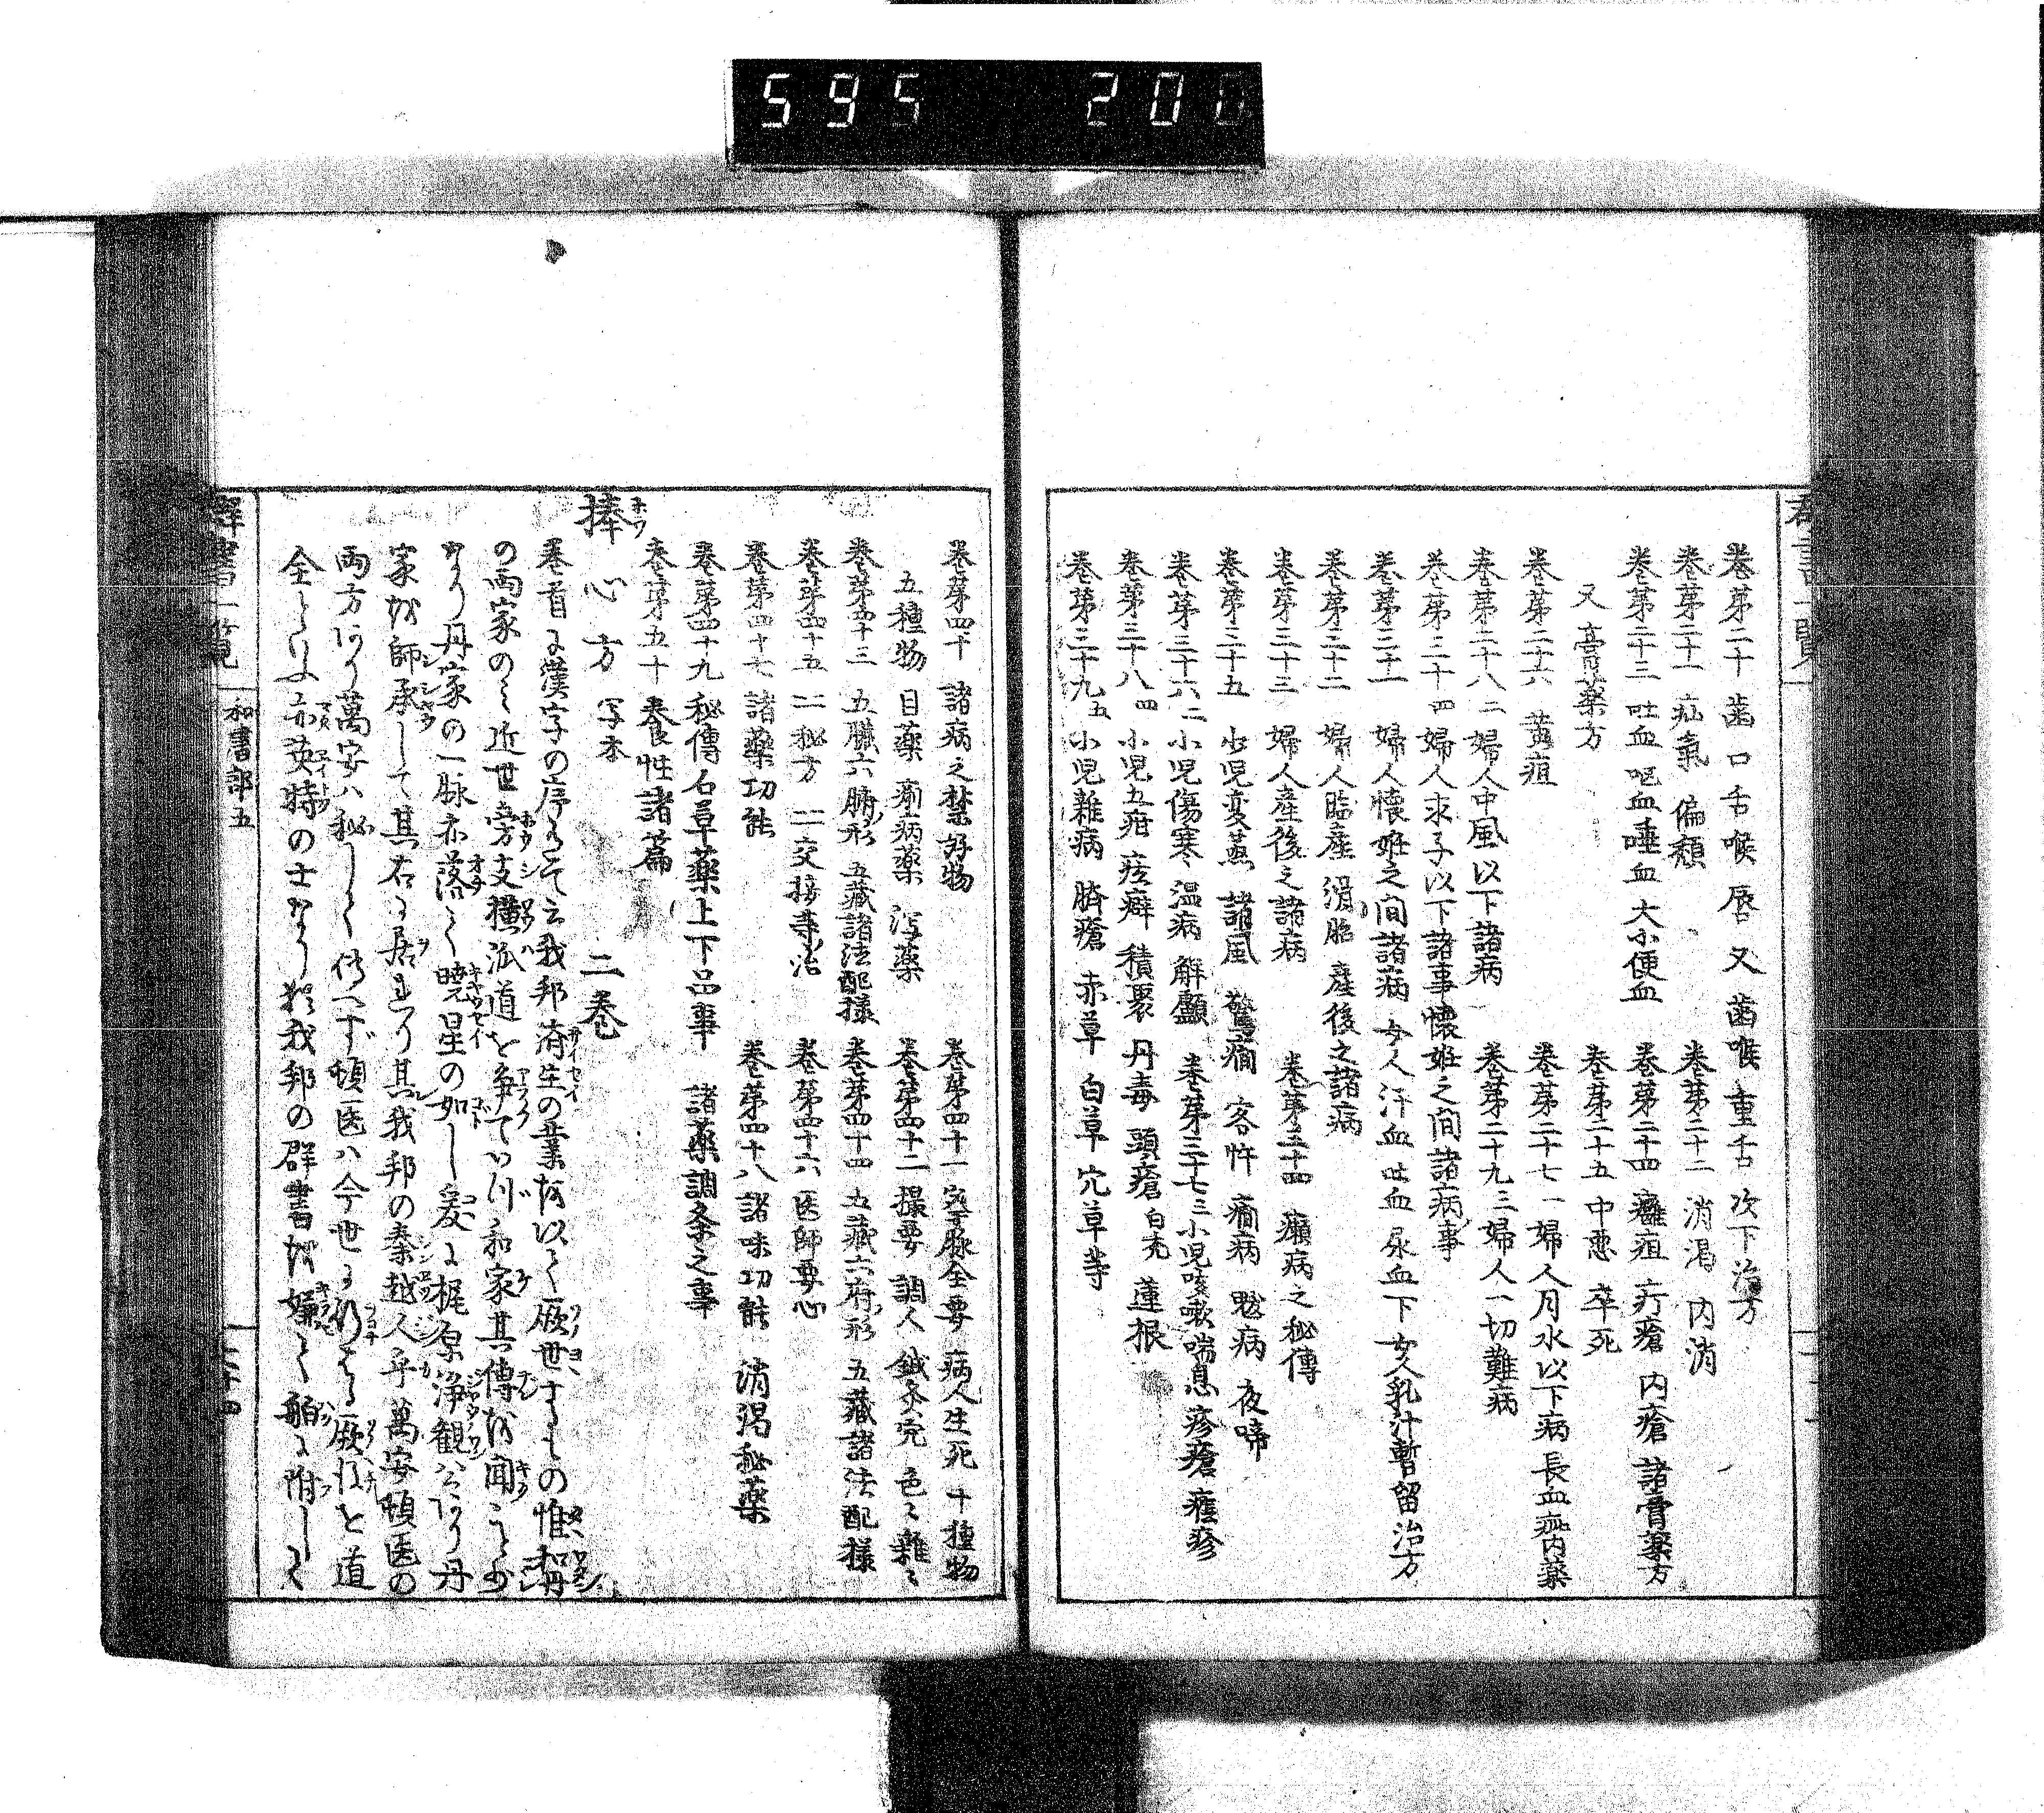 595 201
卷第二十 齒 口 舌 喉 唇 又 齒喉 重舌 次下治方
卷第二十一 疝氣 偏頽 卷第二十二 消渇 内消
卷第二十三 吐血 呕血 唾血 大小便血 卷第二十四 癰疽 疔瘡 内瘡 諸膏藥方
又 膏藥方 卷第二十五 中悪 卒死
卷第二十六 黄疸 卷第二十七一 婦人月水以下病 長血 内藥
卷第二十八二 婦人中風以下諸病 卷第二十九三 婦人一切難病
卷第三十四 婦人求子以下諸事懐妊之间諸病事
卷第三十一 婦人懐妊之间諸病 女人汗血 吐血 尿血 下 女人乳汁暫留治方
卷第三十二 婦人臨産 滑胎 産後之諸病
卷第三十三 婦人産後之諸病 卷第三十四 癩病之秘傳
卷第三十五 小児変蒸 諸風 驚癇 客忤 癇病 魃病 夜啼
卷第三十六二 小児傷寒 温病 解顱 卷第三十七三 小児咳嗽喘息 疹瘡 癮疹
卷第三十八四 小児五疳 痃癖 積聚 丹毒 頭瘡 白禿 蓮根
卷第三十九五 小児雜病 臍瘡 赤草 白草 穴草等
卷第四十 諸病之禁好物 卷第四十一 察脉全要 病人生死 十種物
五種物 目藥 瀉藥 卷第四十二 撮要 調人 鍼灸 色々雜々
卷第四十三 五臓六腑形 五藏諸法配様 卷第四十四 五藏六府形 五藏諸法配様
卷第四十五 二二秘方 二二交接等治 卷第四十六 医師要心
卷第四十七 諸藥功能 卷第四十八 諸味功能 消渇秘藥
卷第四十九 秘傳名草藥上下品事 諸藥調条之事
卷第五十 養性諸篇
捧心方 写本 二卷
卷首に漢字の序有て云我邦済生の業を以て厥世するもの惟和丹
の両家のミ近世旁支横派道を争て 和家其傳を聞こと少
なり丹家の一脉亦落て暁星の如し爰に梶原浄観 あり丹
家を師承して其右に居れり其我邦の秦越人乎萬安頓医の
両方あり萬安ハ秘して傳へず頓医ハ今世に行はる厥 を道
全といふ亦英特の士なり 我邦の群書を 船に附して
群書一覧 和書部五